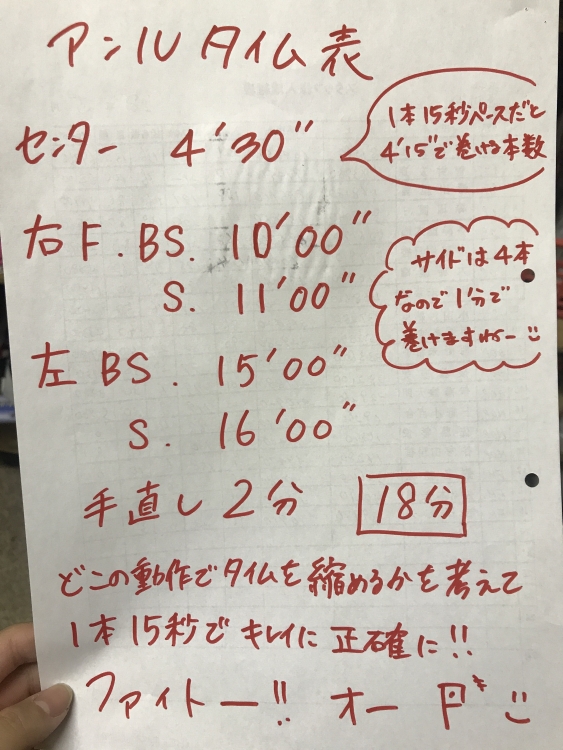 アンIL タイム表
センター 4'30"
1本15秒ペースだと
4'15"で巻ける本数
右F. BS. 10'00"
S. 11'00"
サイドは4本
なので1分で
巻けますねー
左 BS. 15'00"
S. 16'00"
手直し2分 18分
どこの動作でタイムを縮めるかを考えて
1本15秒でキレイに正確に!!
ファイトー!! オー